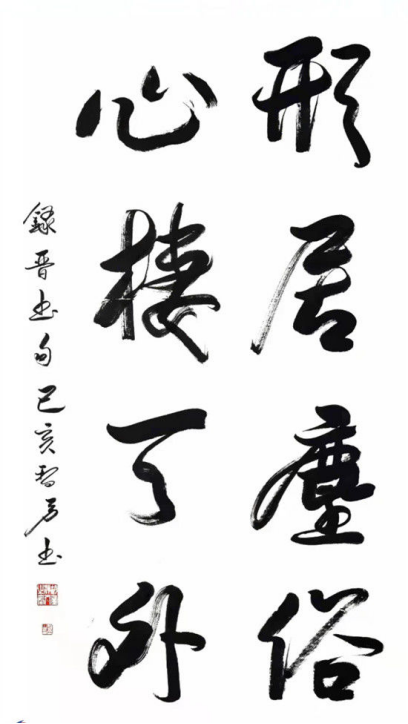 形居塵俗
心棲天外
錄晋书句己亥书